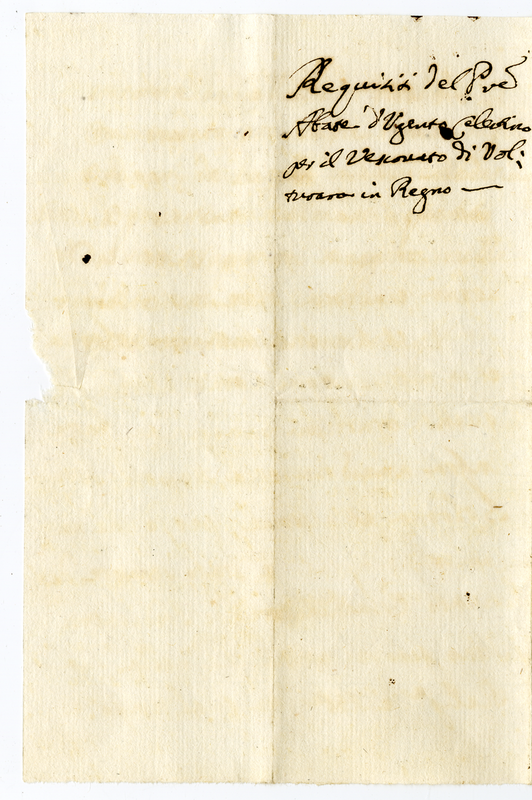 Requisiti del Pre
Abate d'Ugento Celestino
per il Vescovato di Vol:
turara in Regno —